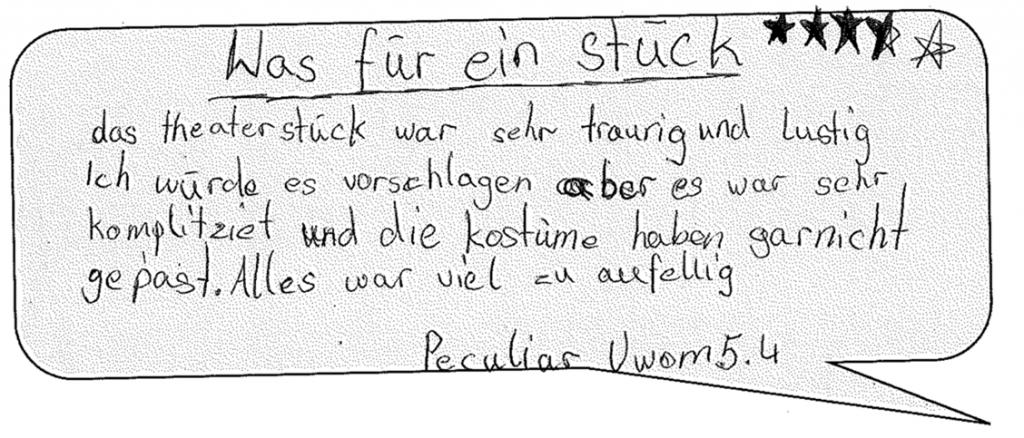 Was für ein Stück
das theaterstück war sehr traurig und Lustig
Ich würde es vorschlagen aber es war sehr
komplitziet und die kostüme haben garnicht
gepast. Alles war viel zu aufellig
Peculiar Uwom 5.4